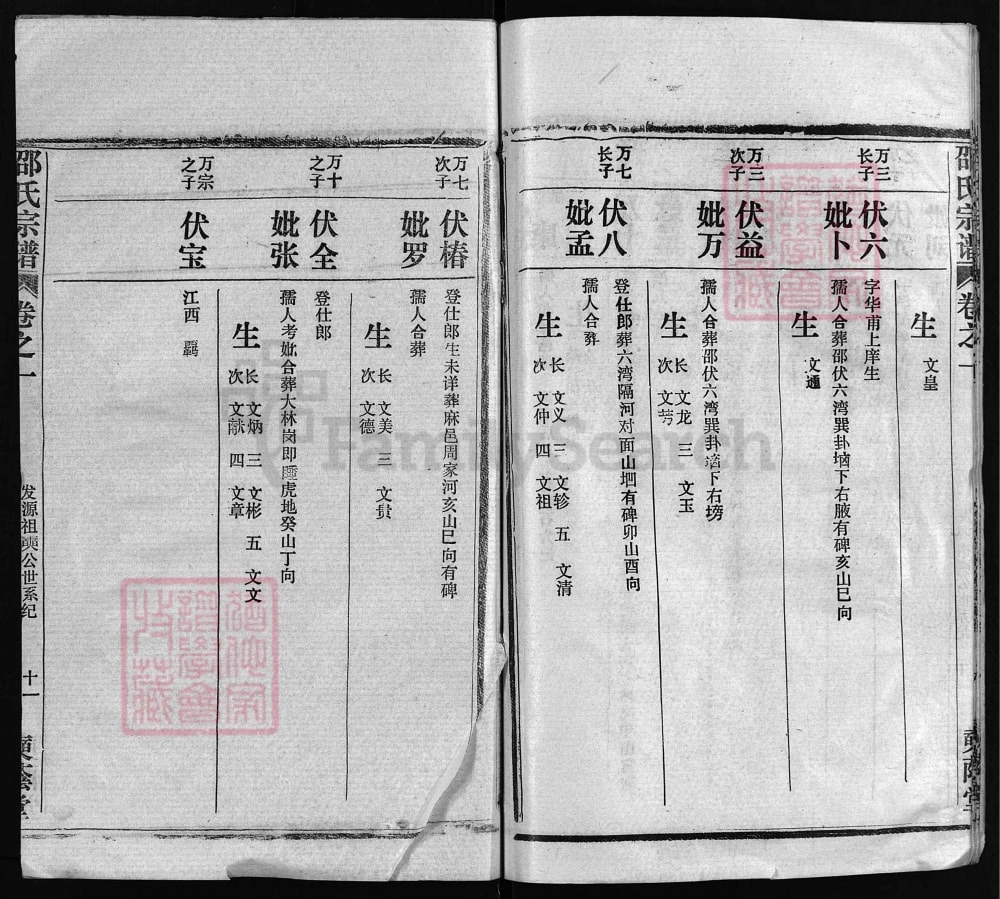 邵氏宗谱
卷之一
生
文皇
万三
长子
伏六
妣卜
字华甫上庠生
孺人合葬邵伏六湾巽卦垴下右腋有碑亥山巳向
生
文通
万三
次子
伏益
妣万
孺人合葬邵伏六湾巽卦垴下右塝
生
长 文龙 三 文玉
次 文芳
万七
长子
伏八
妣孟
登仕郎葬六湾隔河对面山垇有碑卯山酉向
孺人合葬
生
长 文义 三 文轸 五 文清
次 文仲 四 文祖
万七
次子
伏椿
妣罗
登仕郎生未详葬麻邑周家河亥山巳向有碑
孺人合葬
生
长 文美 三 文贵
次 文德
万十
之子
伏全
妣张
登仕郎
孺人考妣合葬大林岗即睡虎地癸山丁向
生
长 文炳 三 文彬 五 文文
次 文献 四 文章
万宗
之子
伏宝
江西
邵氏宗谱
卷之一
发源祖奭公世系纪
十一
FamilySearch